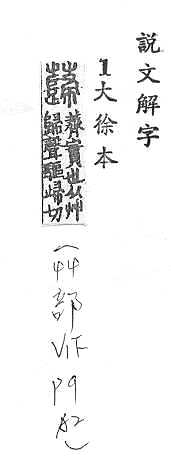 說文解字
1大徐本
蘬 薺實也从艸
歸聲驅歸切
(艸部 V1下 P9 A2)